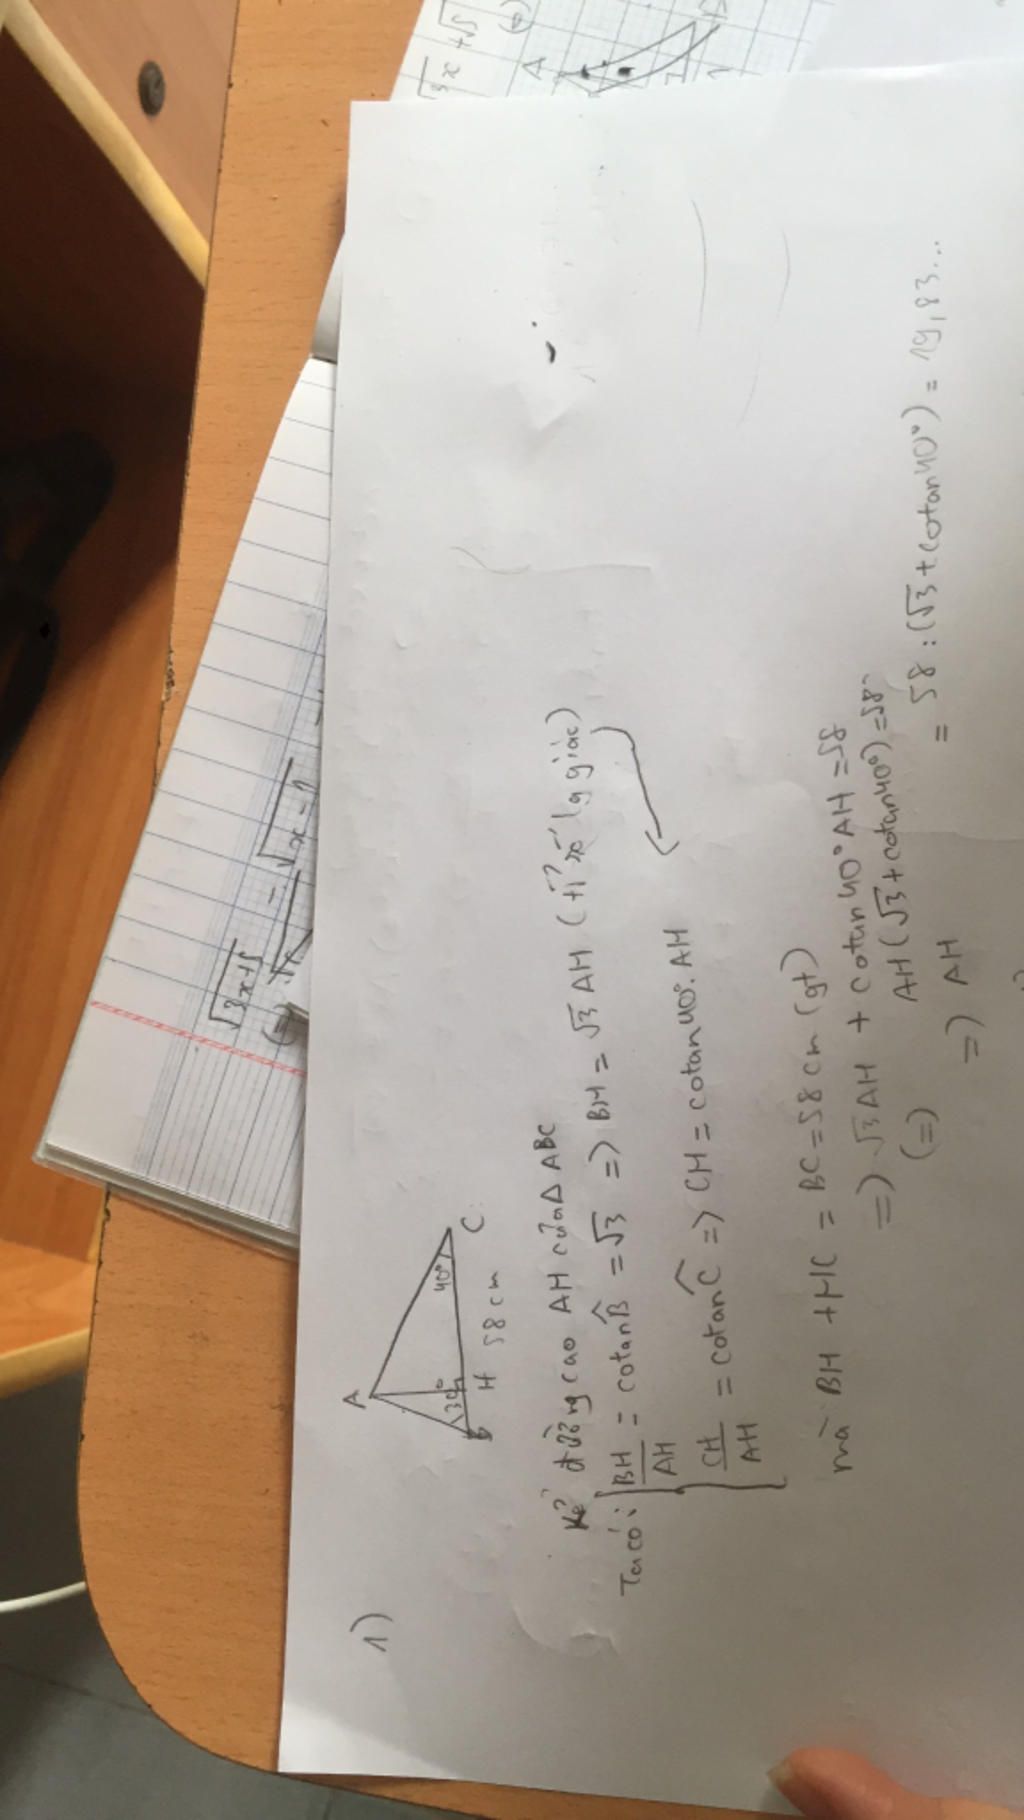 1)
A
30°
40°
B
H
C
58 cm
Kẻ đường cao AH của Δ ABC
Ta có: BH/AH = cotan B̂ = √3 => BH = √3 AH (tỉ số lg giác)
CH/AH = cotan Ĉ => CH = cotan 40°. AH
mà BH + HC = BC = 58 cm (gt)
=> √3 AH + cotan 40° AH = 58
(=) AH (√3 + cotan 40°) = 58
=> AH = 58 : (√3 + cotan 40°) = 19,83...
√3x+5
(=)
= √x-1
√3x + √5
(=)
A